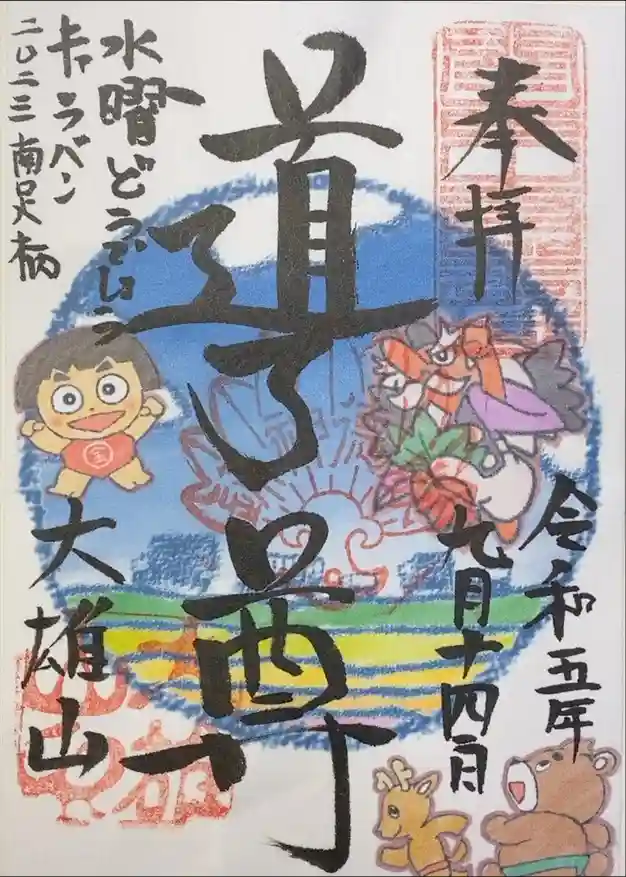 奉拝
令和五年
九月十四日
道了尊
水曜どうでしょう
キャラバン
二〇二三 南足柄
大雄山
金